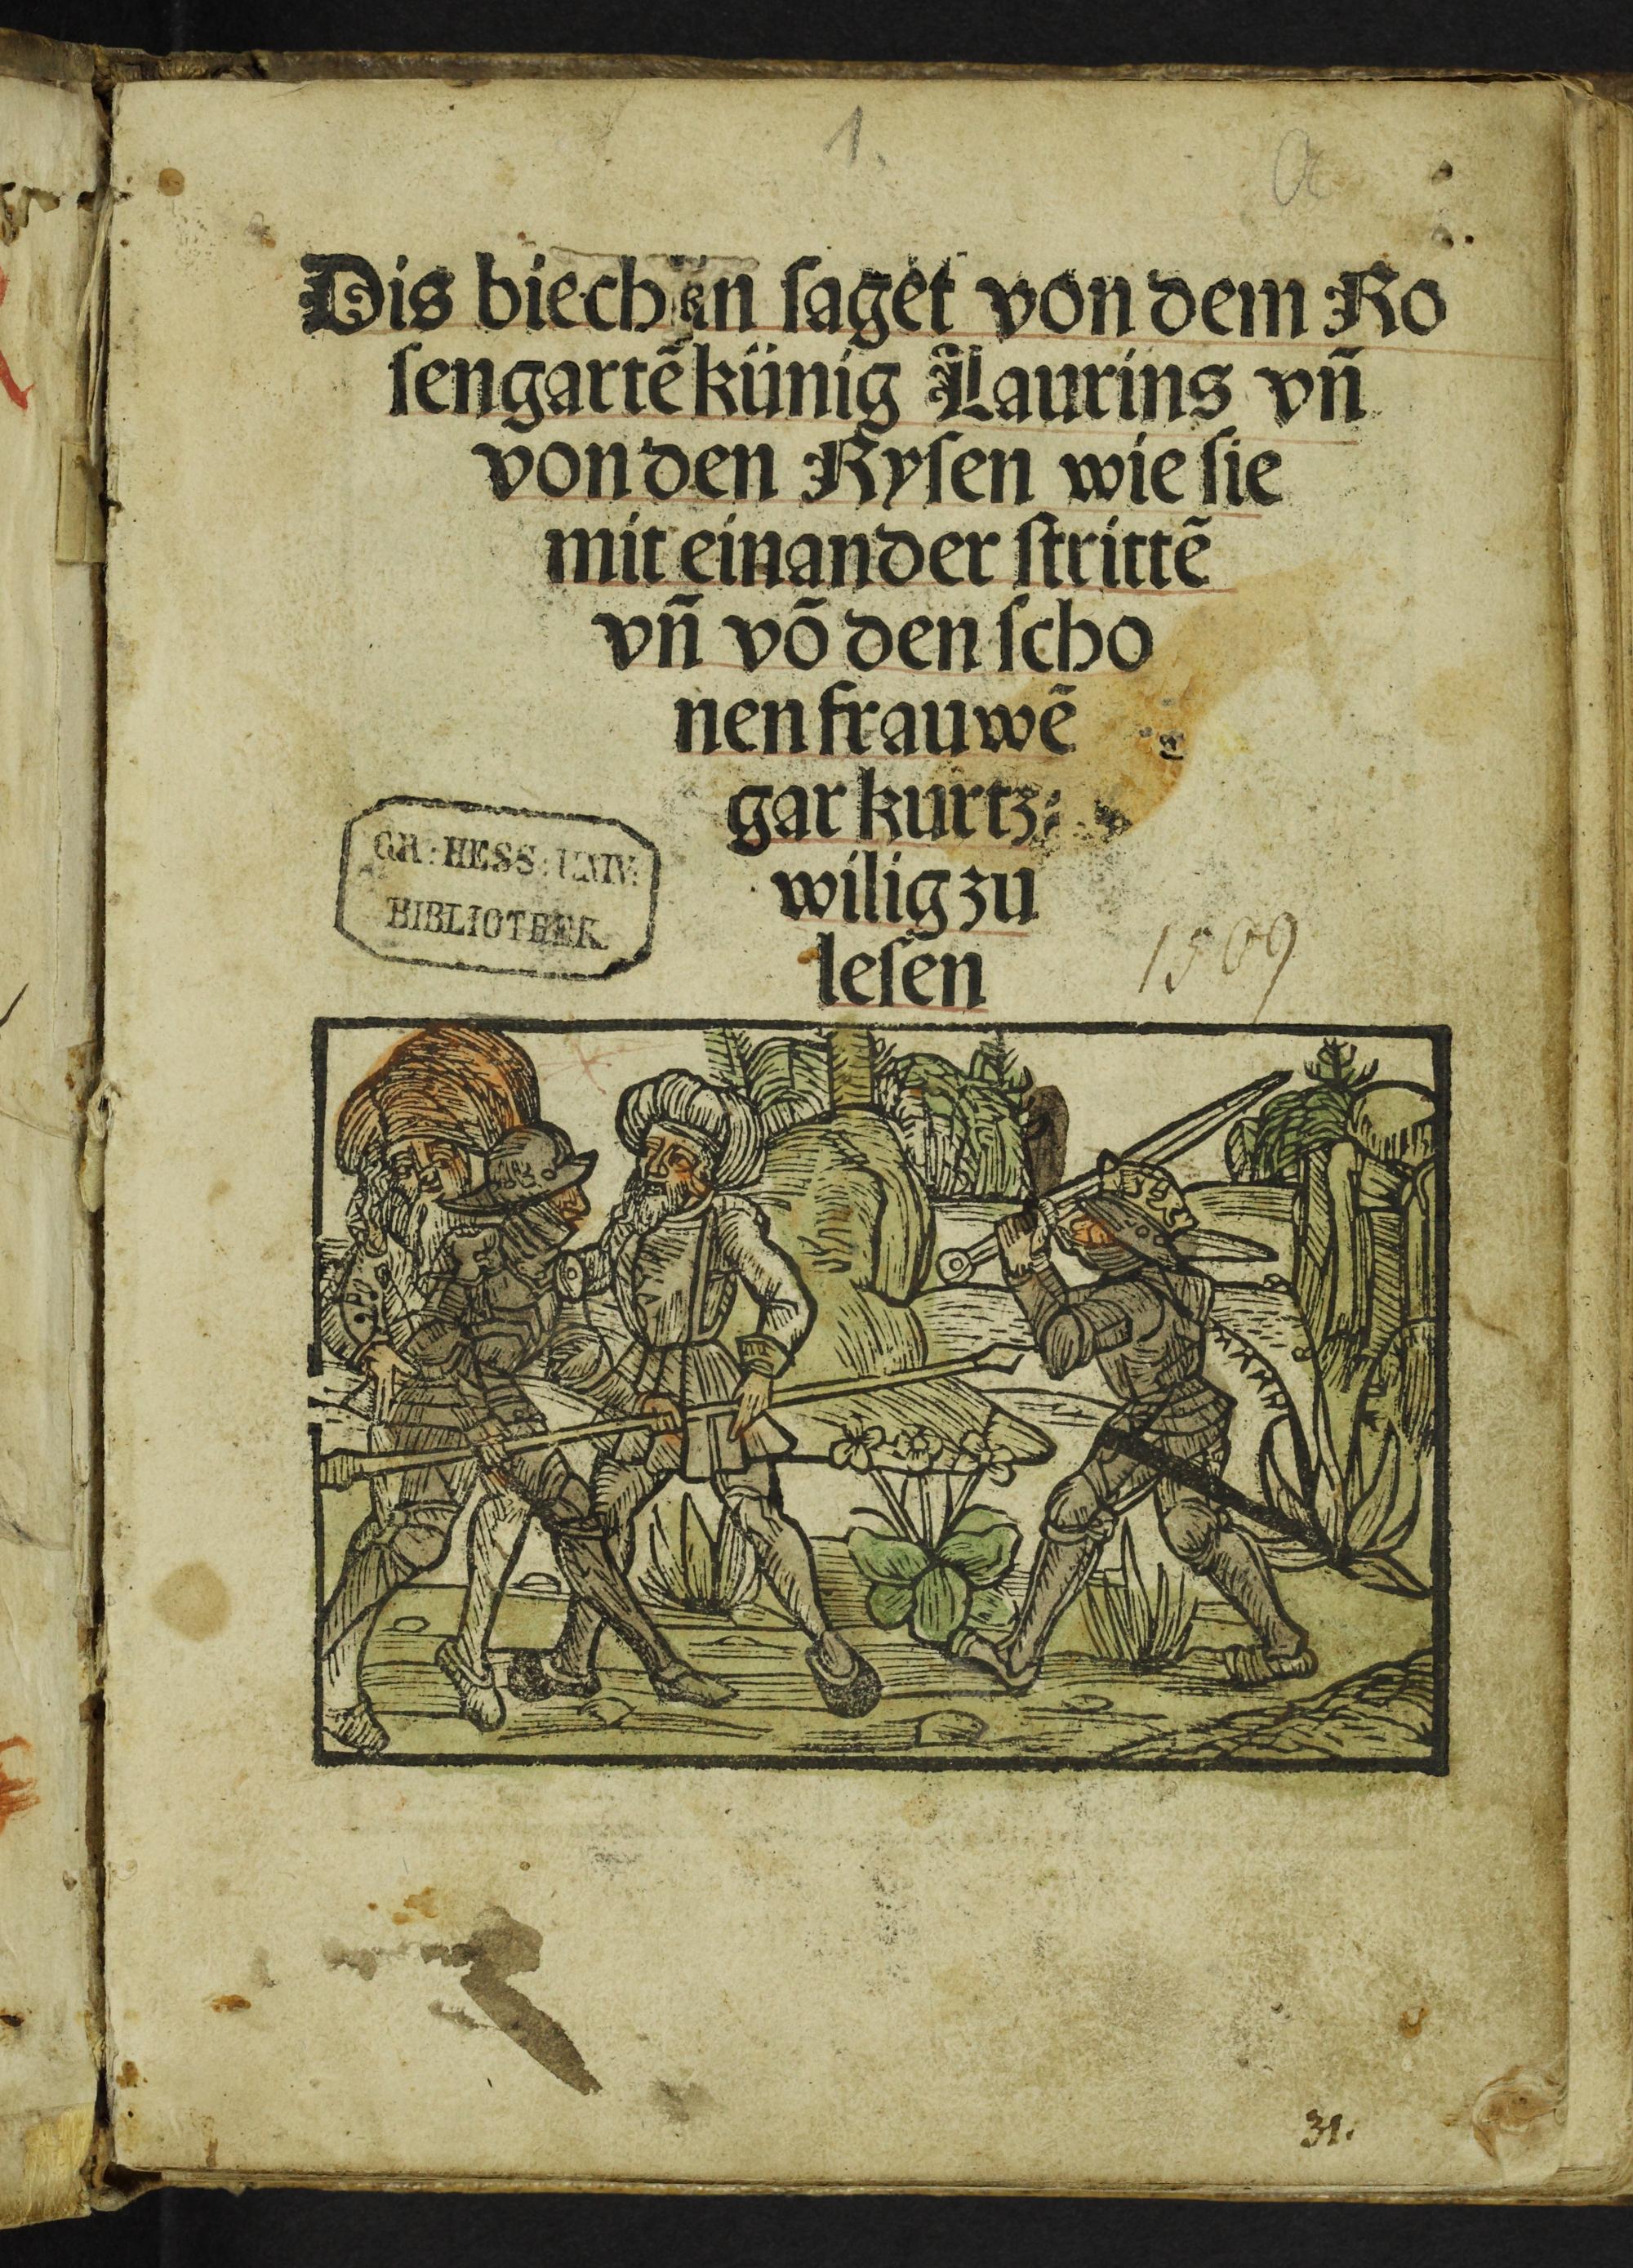 1.
a
Dis biechlin saget von dem Ro
sengartē künig Laurins vñ
von den Rysen wie sie
mit einander strittē
vñ vō den scho
nen frauwē
gar kurtz⸗
wilig zu
lesen
GR: HESS: UNIV:
BIBLIOTHEK
1509
31.